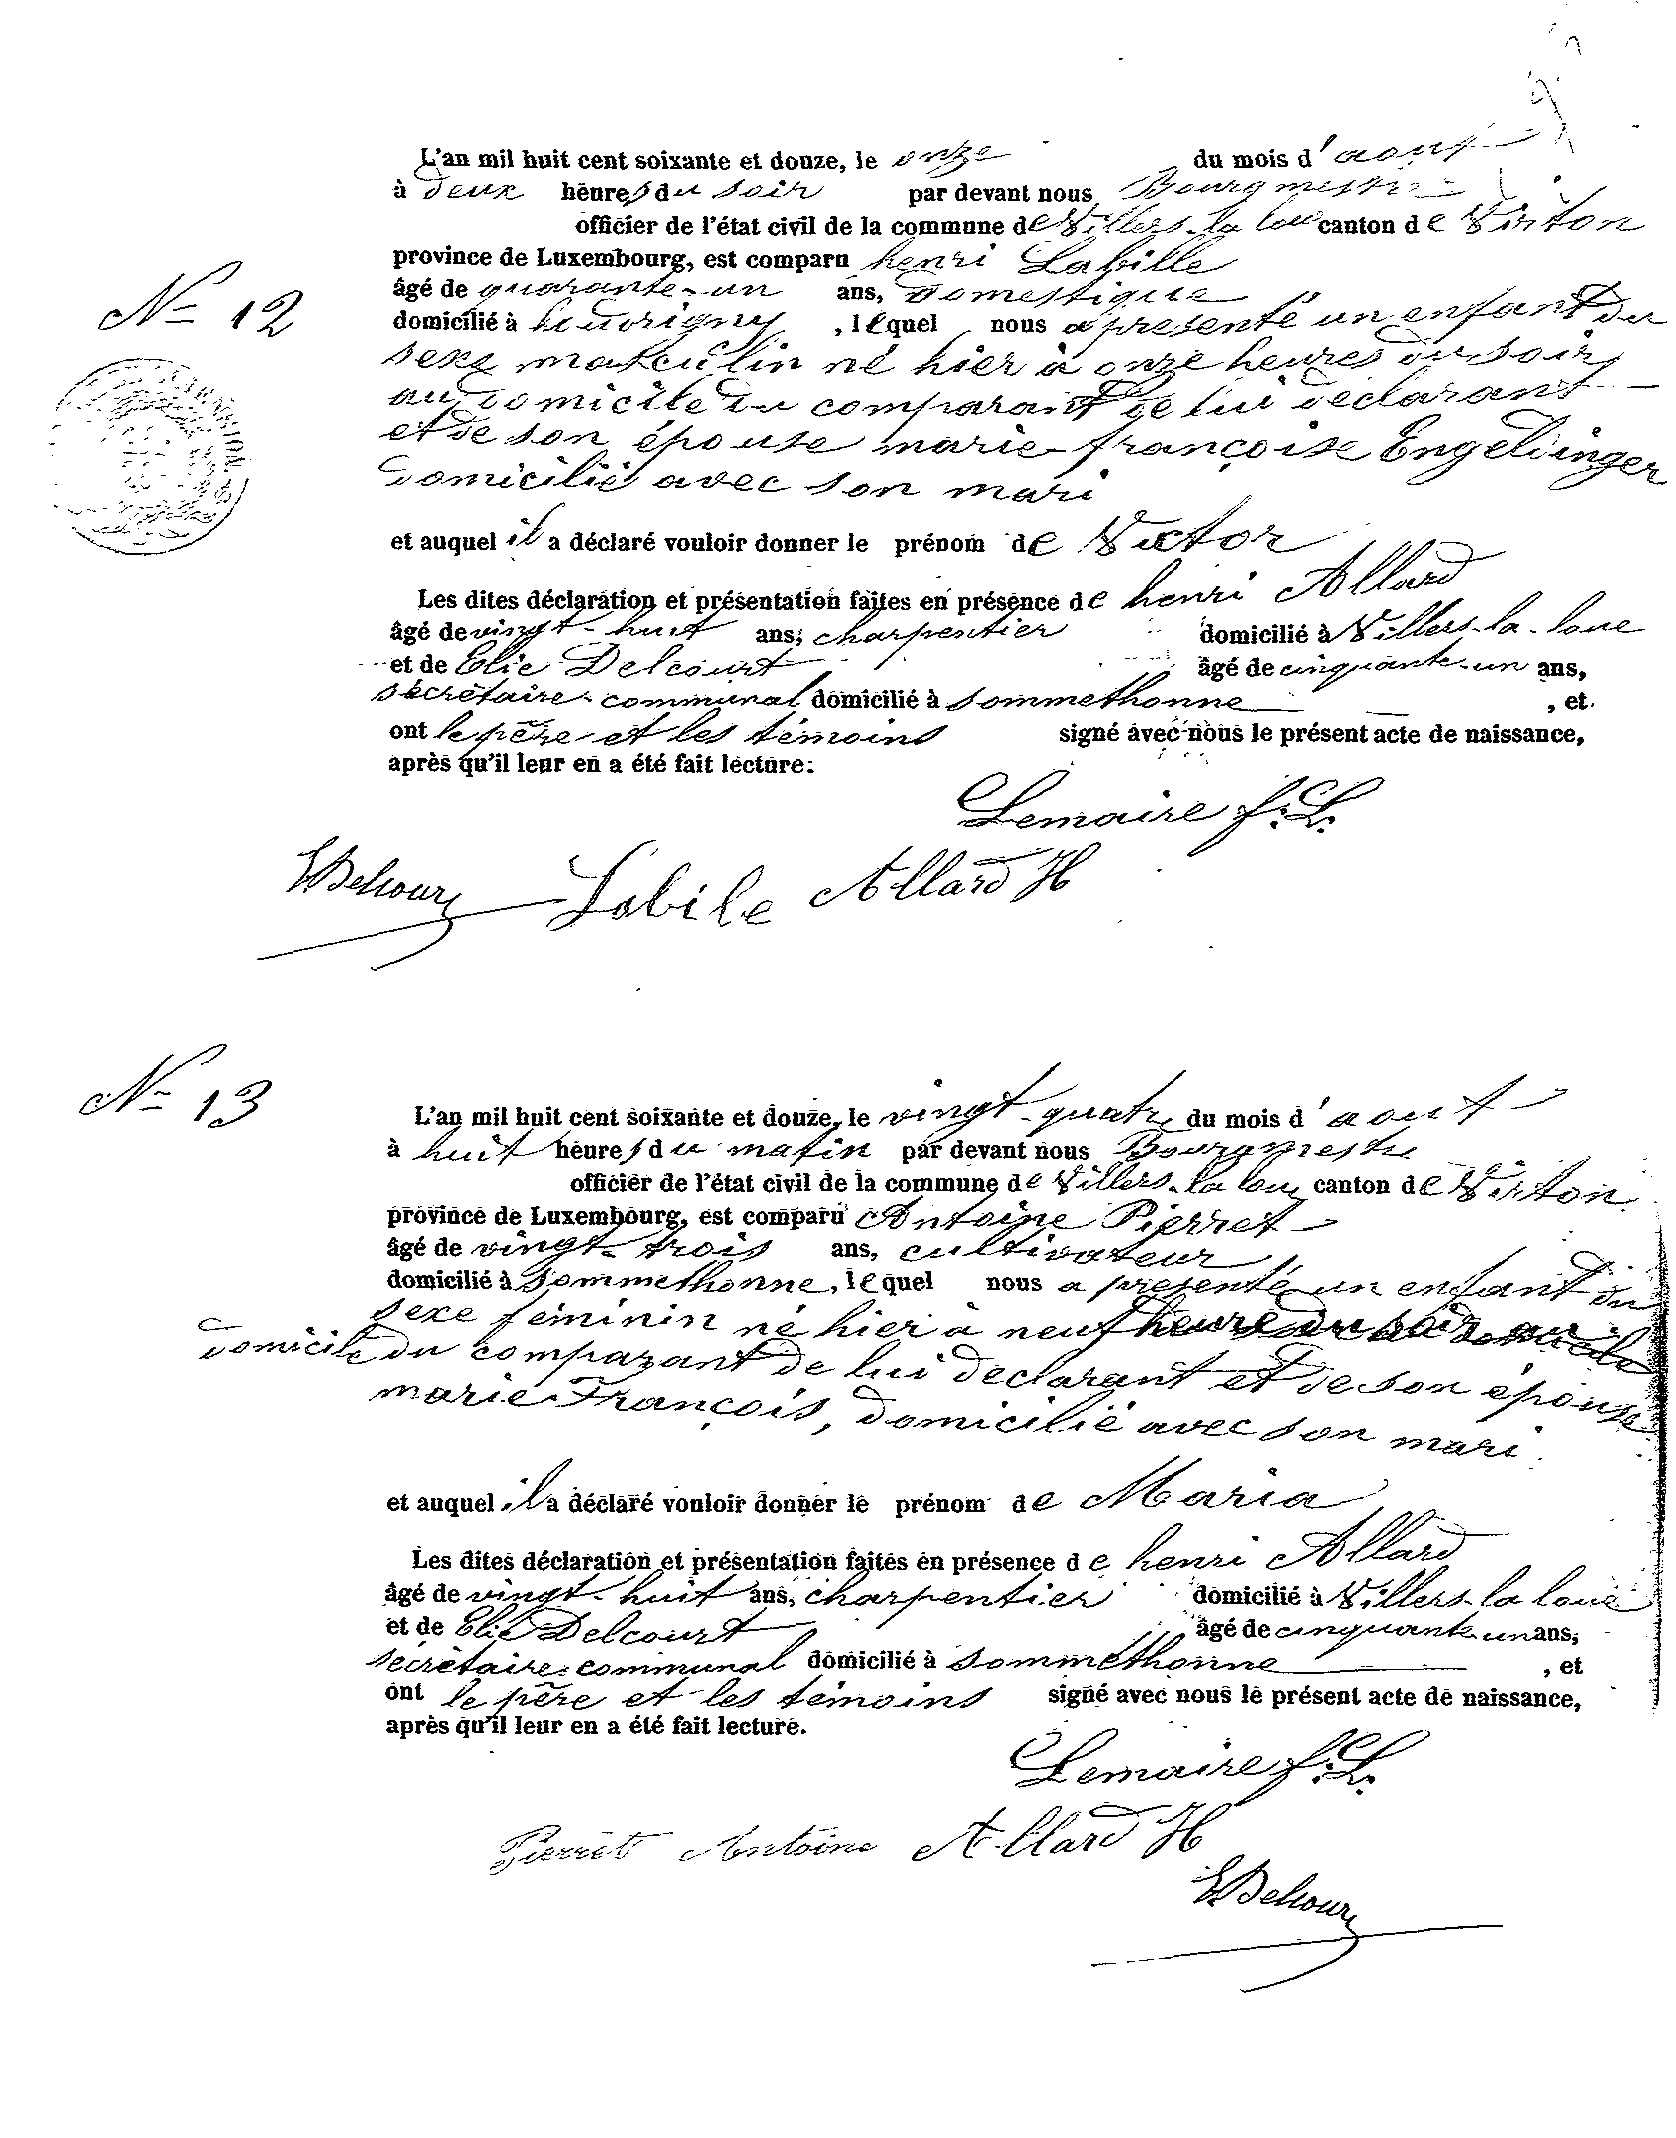 L'an mil huit cent soixante et douze, le onze du mois d'aout
à deux heures du soir par devant nous Bourgmestre
officier de l'état civil de la commune de Villers-la-loue canton de Virton
province de Luxembourg, est comparu henri Labille
N° 12
âgé de quarante-un ans, Domestique
domicilié à houdrigny, lequel nous a présenté un enfant du
sexe masculin né hier à onze heures du soir,
au Domicile du comparant de lui déclarant
et de son épouse marie-françoise Engeldinger
Domicilié avec son mari
et auquel il a déclaré vouloir donner le prénom de Victor
Les dites déclaration et présentation faites en présence de henri Allard
âgé de vingt-huit ans, charpentier domicilié à Villers-la-loue
et de Elie Delcourt âgé de cinquante-un ans,
sécrétaire-communal domicilié à Sommethonne, et
ont le père et les témoins signé avec nous le présent acte de naissance,
après qu'il leur en a été fait lecture.
Lemaire f. L.
EDelcourt Labile Allard H
N° 13
L'an mil huit cent soixante et douze, le vingt-quatre du mois d'aout
à huit heures du matin par devant nous Bourgmestre
officier de l'état civil de la commune de Villers-la loue canton de Virton
province de Luxembourg, est comparu Antoine Pierret
âgé de vingt-trois ans, cultivateur
domicilié à Sommethonne, lequel nous a présenté un enfant du
sexe féminin né hier à neuf heure du soir au domicile
domicile du comparant de lui déclarant et de son épouse
marie François, domicilié avec son mari
et auquel il a déclaré vouloir donner le prénom de Maria
Les dites déclaration et présentation faites en présence de henri Allard
âgé de vingt-huit ans, charpentier domicilié à Villers-la loue
et de Elie Delcourt âgé de cinquante un ans,
sécrétaire-communal domicilié à Sommethonne, et
ont le père et les témoins signé avec nous le présent acte de naissance,
après qu'il leur en a été fait lecture.
Lemaire f. L.
Pierret Antoine Allard H
EDelcourt